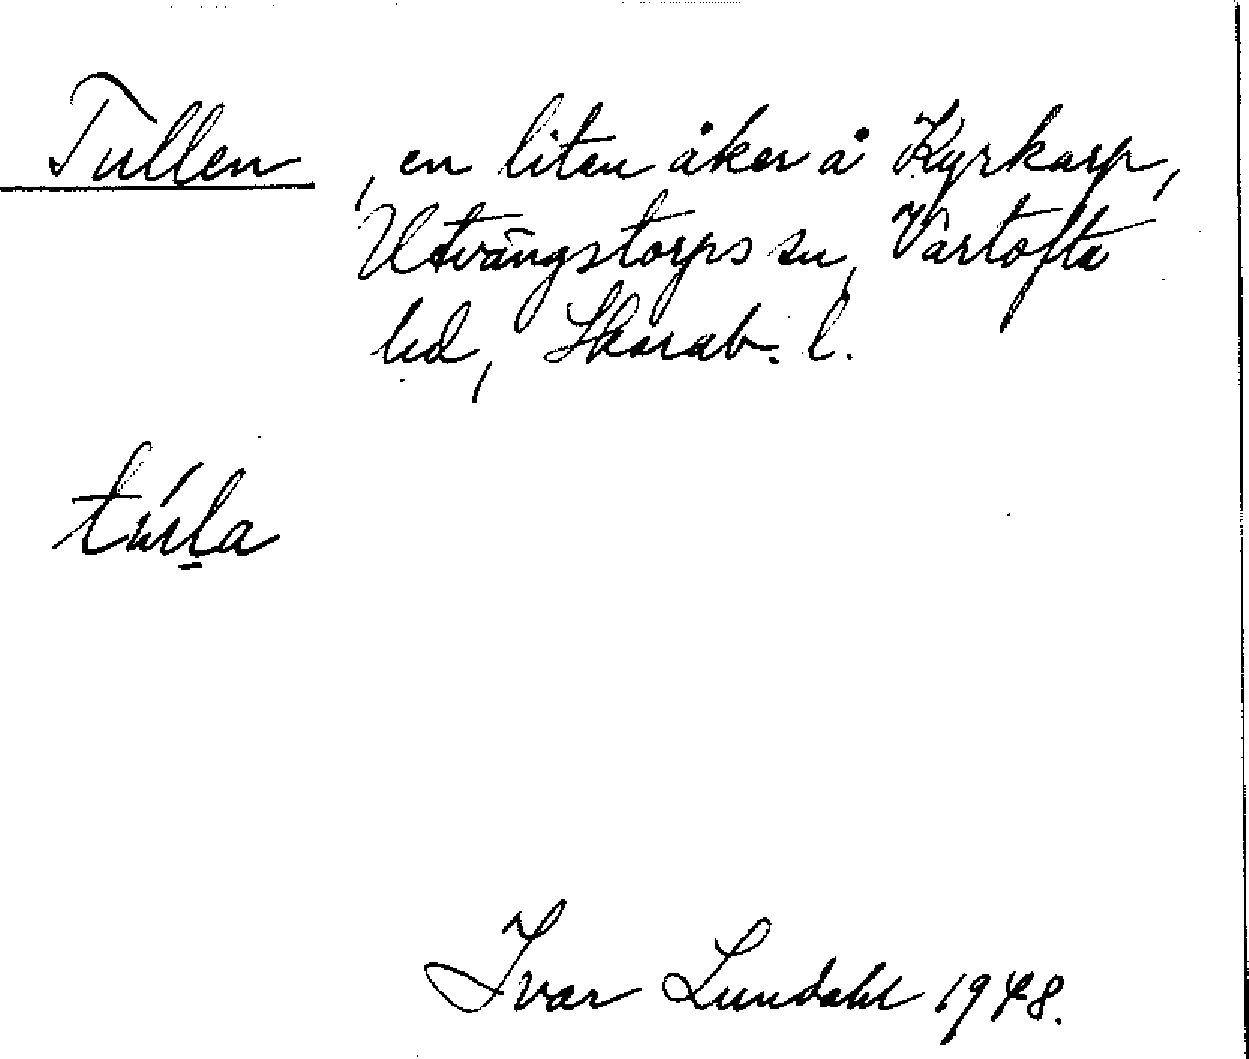 Tullen, en liten åker å Kyrkarp,
Utvängstorps sn, Vartofta
hd, Skarab. l.
túl̠a
Ivar Lundahl 1948.